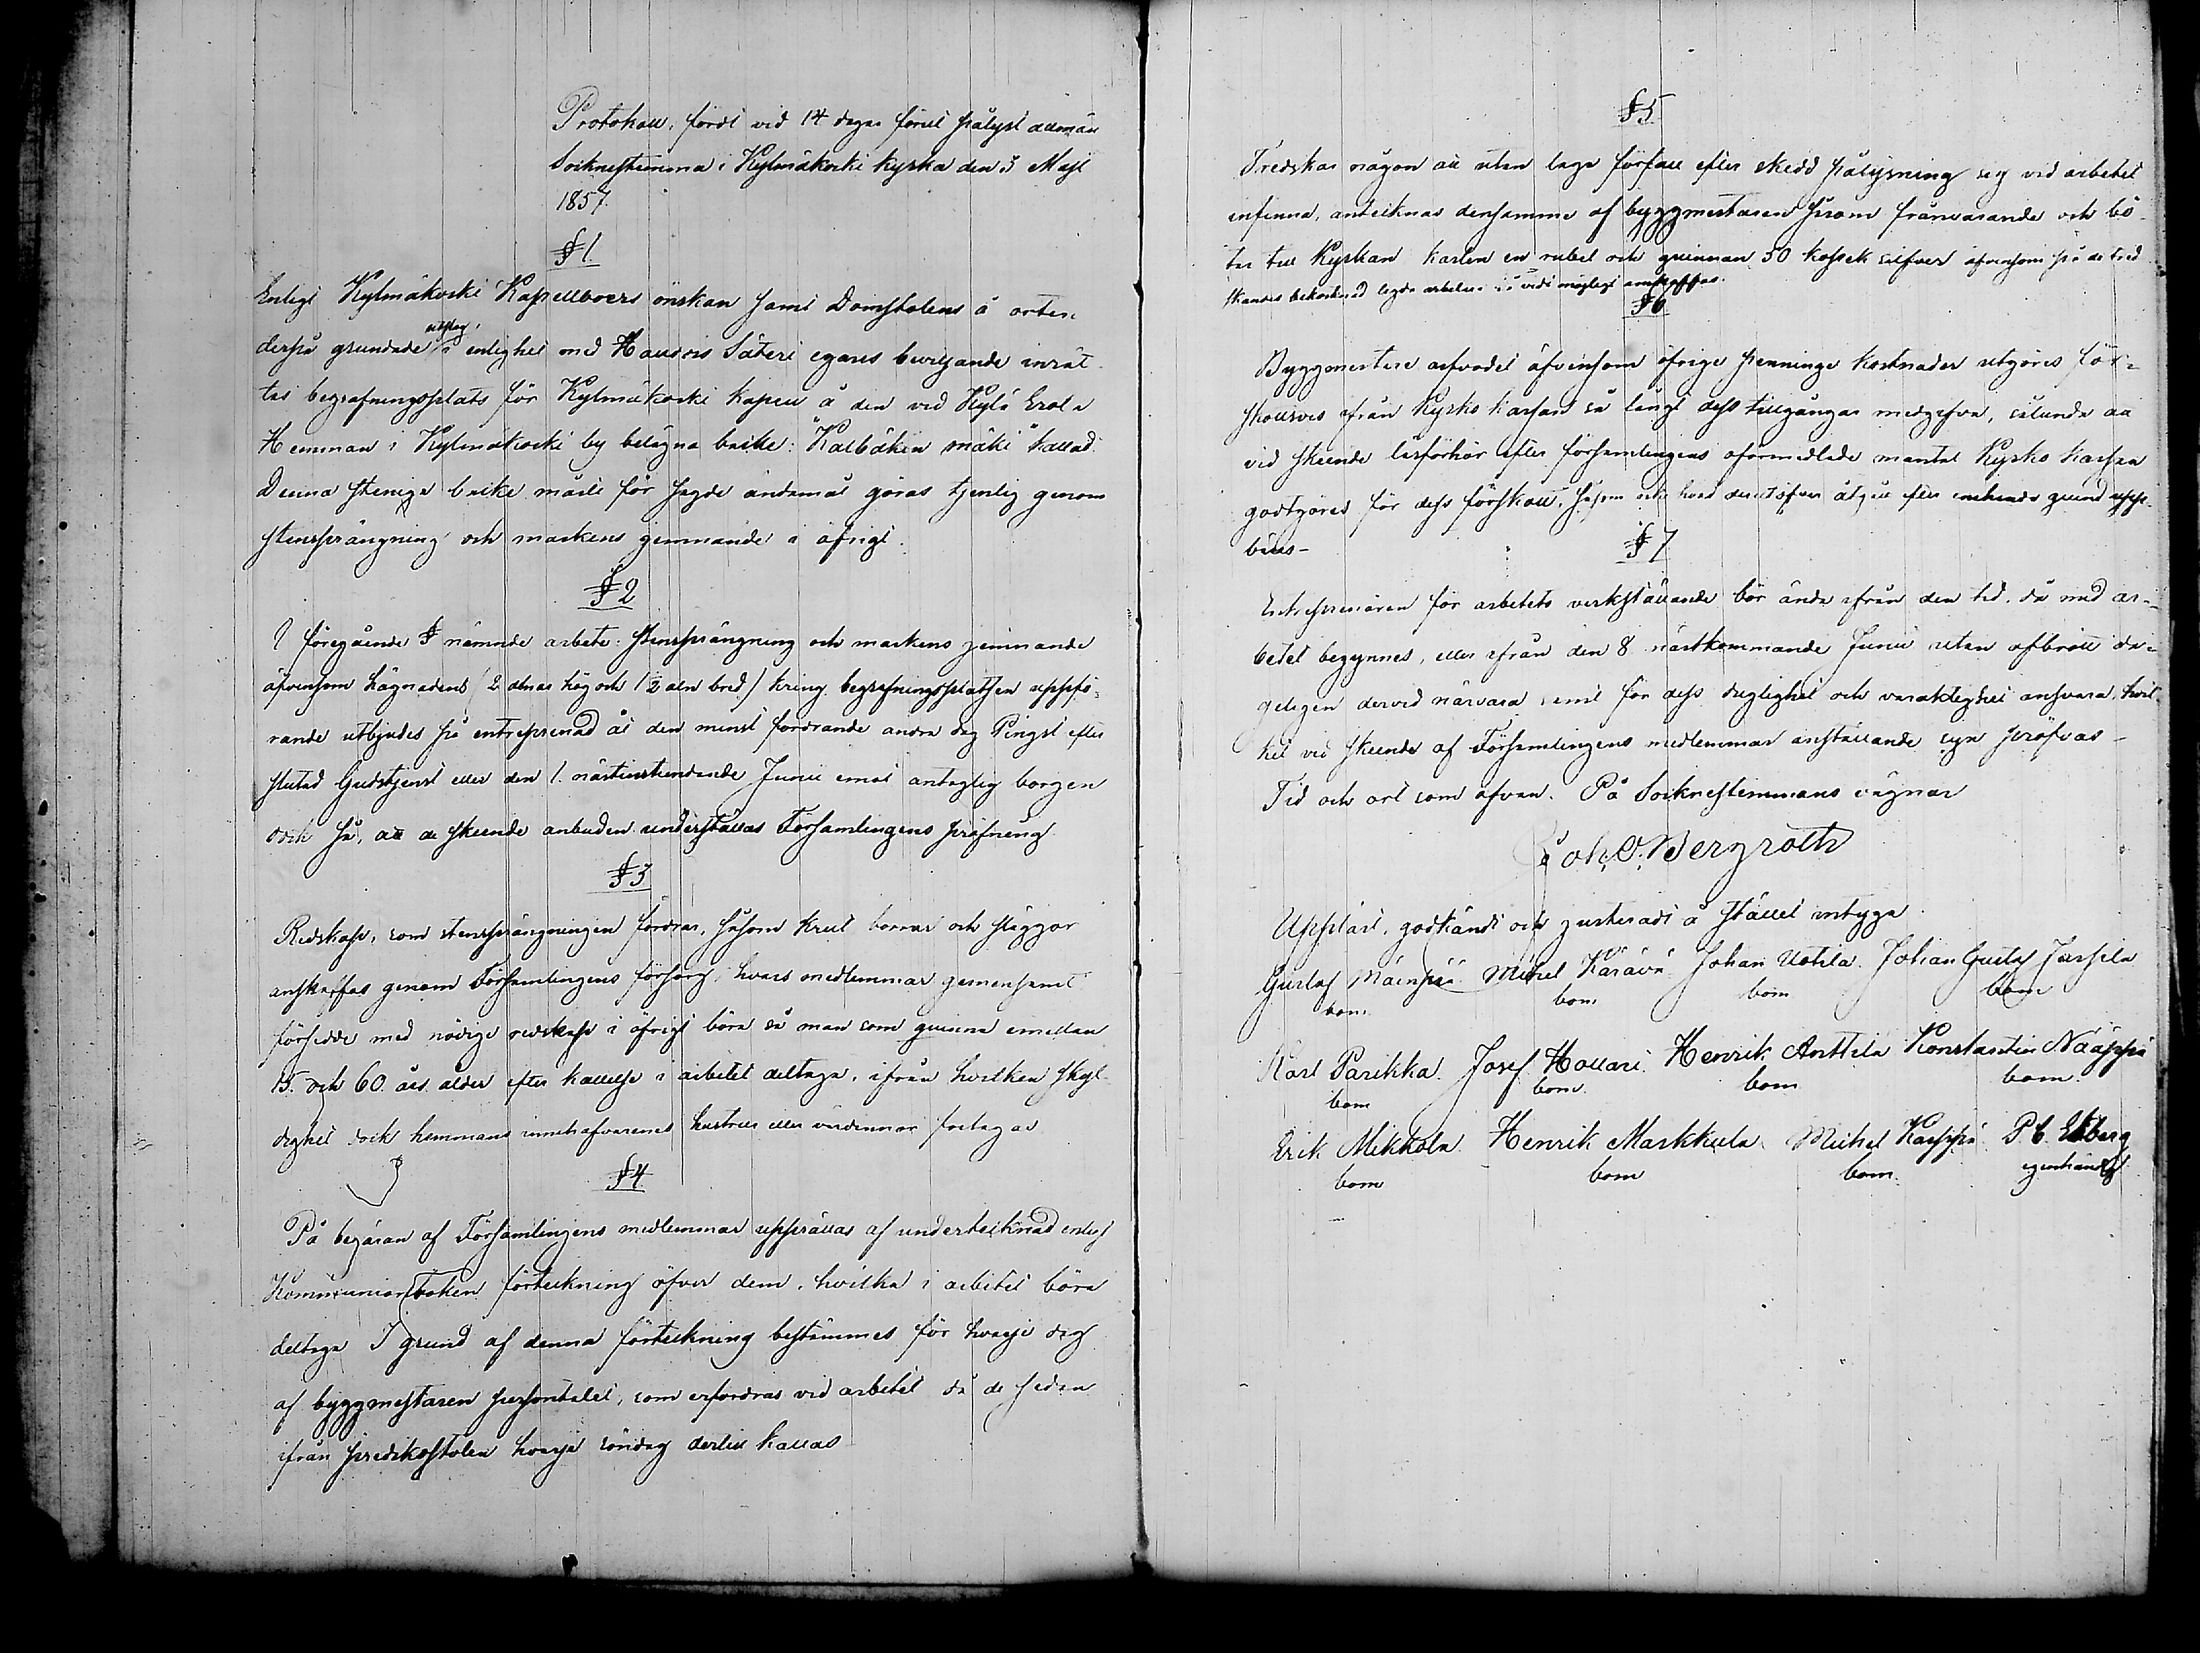 Protokoll, fördt vid 14 dagar förut pålyst allmän
Sockenstämma i Kylmäkoski kyrka den 3 Maji
1857.
§ 1.
Enligt Kylmäkoski Kapellboers önskan samt Domstolens å orten
derpå grundade utslag, i enlighet med Hauvois Säteri egares beviljande inrät-
tas begrafningsplats för Kylmäkoski kapell å den vid Kylä Erola
Hemman i Kylmäkoski by belägna backe: "Kalbäken mäki" kallad.
Denna steniga backe måste för sagde ändamål göras tjenlig genom
stensprängning och markens jemnande i öfrigt.
§ 2
I föregående § nämnde arbete: stensprängning och markens jemnande
äfvensom hägnadens (2 alnar hög och 1/2 aln bred) kring begrafningsplatsen uppfö-
rande utbjudes på entreprenad åt den minst fordrande andra dag Pingst efter
slutad Gudstjenst eller den 1. nästinstundande Junii emot antaglig borgen
dock så, att de skeende anbuden understållas Församlingens pröfning.
§ 3
Redskap, som stensprängningen fordrar, såsom krut borrar och släggor
anskaffas genom Församlingens försorg, hvars medlemmar gemensamt
försedde med nödige redskap i öfrigt böra så man som quinna emellan
15. och 60. års ålder efter kallelse i arbetet deltaga, ifrån hvilken skyl-
dighet dock hemmans innehafvarenes hustrur eller värdinnor fritagas
§ 4
På begäran af Församlingens medlemmar upprättas af undertecknad enligt
Kommunionboken förteckning öfver dem, hvilka i arbetet böra
deltaga I grund af denna förteckning bestämmes för hvarje dag
af byggmestaren personalet, som erfordras vid arbetet då de sedan
ifrån predikostolen hvarje söndag dertill kallas
§ 5
Tredskas någon att utan laga förfall efter skedd pålysning sig vid arbetet
infinna, antecknas densamma af byggmestaren såsom frånvarande och bö-
tar till Kyrkan karlen en rubel och quinnan 50 kopek silfver äfvensom på de tred-
skandes bekostnad legda arbetare i så vidt möjligt anskaffas.
§ 6
Byggmestare arfvodet äfvensom öfrige penninge kostnader utgöres för-
skottsvis ifrån Kyrko kassan så långt dess tillgångar medgifva, sålunda att
vid skeende läsförhör efter församlingens oförmedlade mantal Kyrko kassan
godtgöres för dess förskott, såsom ock hvad derutöfver åtgått efter enahanda grund upp-
bäres-
§ 7
Entreprenören för arbetets verkställande bör ända ifrån den tid, då med ar-
betet begynnes, eller ifrån den 8 nästkommande Junii utan afbrott da-
geligen dervid närvara samt för dess duglighet och varaktighet ansvara, hvil-
ket vid skeende af Församlingens medlemmar anställande syn pröfvas -
Tid och ort som ofvan. På Sockenstämmans vägnar
Joh. O. Bergroth
Uppläst, godkändt och justeradt å stället intyga.
Gustaf Mäenpää Michel Kärävä Johan Uotila Johan Gustaf Jussila
bom bom bom bom
Karl Parikka. Josef Hollari. Henrik Anttila Konstantin Nääppä
bom bom bom bom
Erik Mikkola. Henrik Markkula Michel Kaappä P. E. Ekberg
bom bom bom egenhändigt